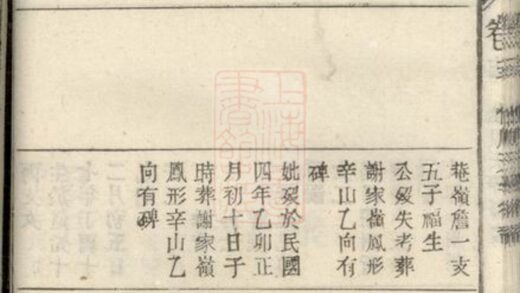 卷
菴嶺詹一支
五子福生
公歿失考葬
謝家嶺鳳形
辛山乙向有
碑
妣歿於民國
四年乙卯正
月初十日子
時葬謝家嶺
鳳形辛山乙
向有碑